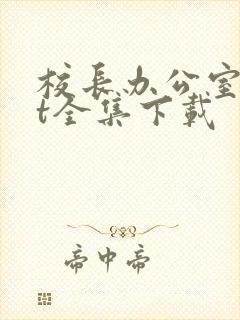 校长办公室
t全集下载
帝中帝